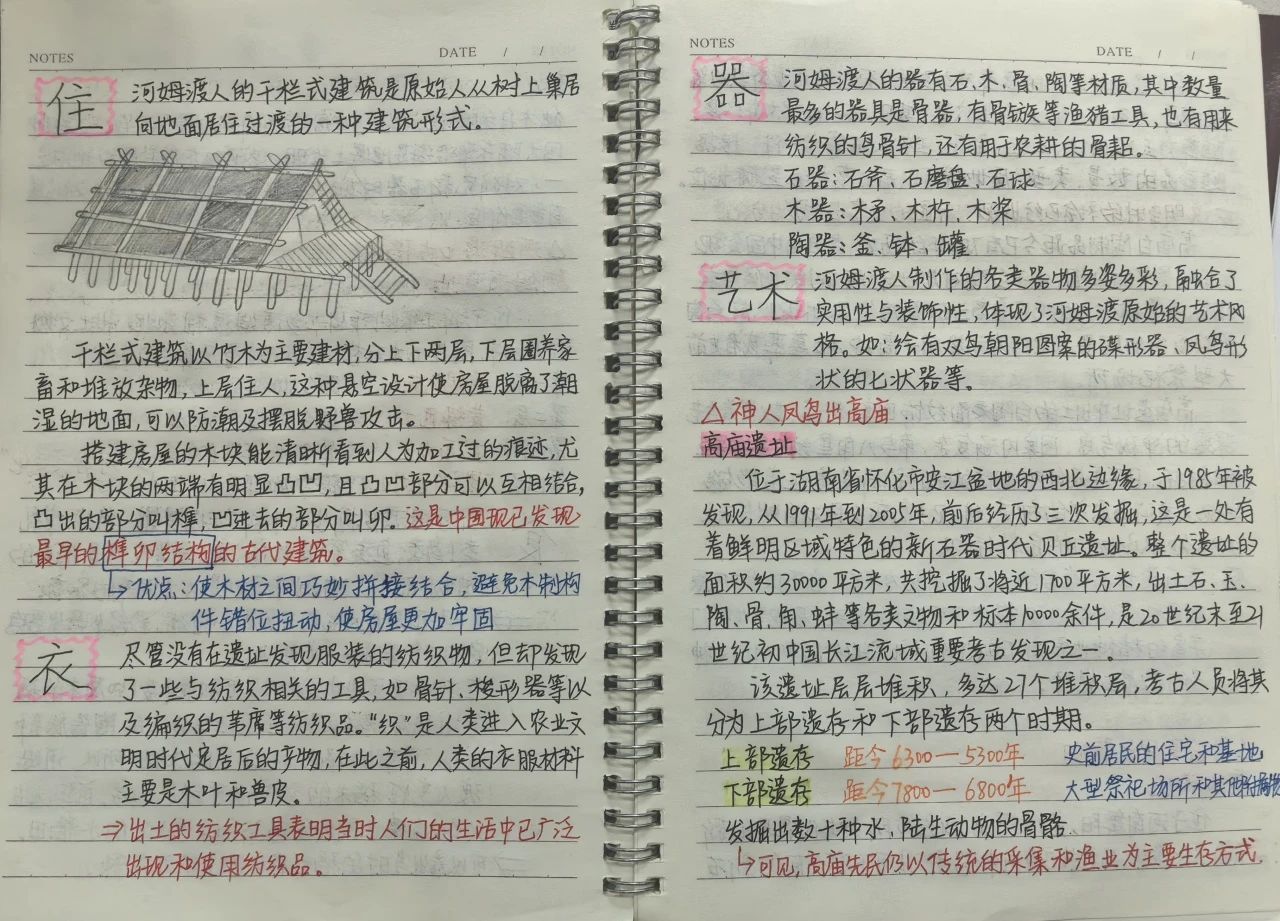 NOTES
DATE / /
住
河姆渡人的干栏式建筑是原始人从树上巢居
向地面居住过渡的一种建筑形式。
干栏式建筑以竹木为主要建材,分上下两层,下层圈养家
畜和堆放杂物,上层住人,这种悬空设计使房屋脱离了潮
湿的地面,可以防潮及摆脱野兽攻击。
搭建房屋的木块能清晰看到人为加工过的痕迹,尤
其在木块的两端有明显凸凹,且凸凹部分可以互相结合,
凸出的部分叫榫,凹进去的部分叫卯。这是中国现已发现
最早的榫卯结构的古代建筑。
↳优点:使木材之间巧妙拼接结合,避免木制构
件错位扭动,使房屋更加牢固
衣
尽管没有在遗址发现服装的纺织物,但却发现
了一些与纺织相关的工具,如骨针、梭形器等以
及编织的苇席等纺织品。“织”是人类进入农业文
明时代定居后的产物,在此之前,人类的衣服材料
主要是木叶和兽皮。
⇒出土的纺织工具表明当时人们的生活中已广泛
出现和使用纺织品。
NOTES
DATE / /
器
河姆渡人的器有石、木、骨、陶等材质,其中数量
最多的器具是骨器,有骨镞等渔猎工具,也有用来
纺织的鸟骨针,还有用于农耕的骨耜。
石器:石斧、石磨盘、石球
木器:木矛、木杵、木桨
陶器:釜、钵、罐
艺术
河姆渡人制作的各类器物多姿多彩,融合了
实用性与装饰性,体现了河姆渡原始的艺术风
格。如:绘有双鸟朝阳图案的碟形器、凤鸟形
状的匕状器等。
△神人凤鸟出高庙
高庙遗址
位于湖南省怀化市安江盆地的西北边缘,于1985年被
发现,从1991年到2005年,前后经历了三次发掘,这是一处有
着鲜明区域特色的新石器时代贝丘遗址。整个遗址的
面积约30000平方米,共挖掘了将近1700平方米,出土石、玉、
陶、骨、角、蚌等各类文物和标本10000余件,是20世纪末至21
世纪初中国长江流域重要考古发现之一。
该遗址层层堆积,多达27个堆积层,考古人员将其
分为上部遗存和下部遗存两个时期。
上部遗存 距今6300—5300年 史前居民的住宅和基地
下部遗存 距今7800—6800年 大型祭祀场所和其他附属设
发掘出数十种水,陆生动物的骨骼.
↳可见,高庙先民仍以传统的采集和渔业为主要生存方式.